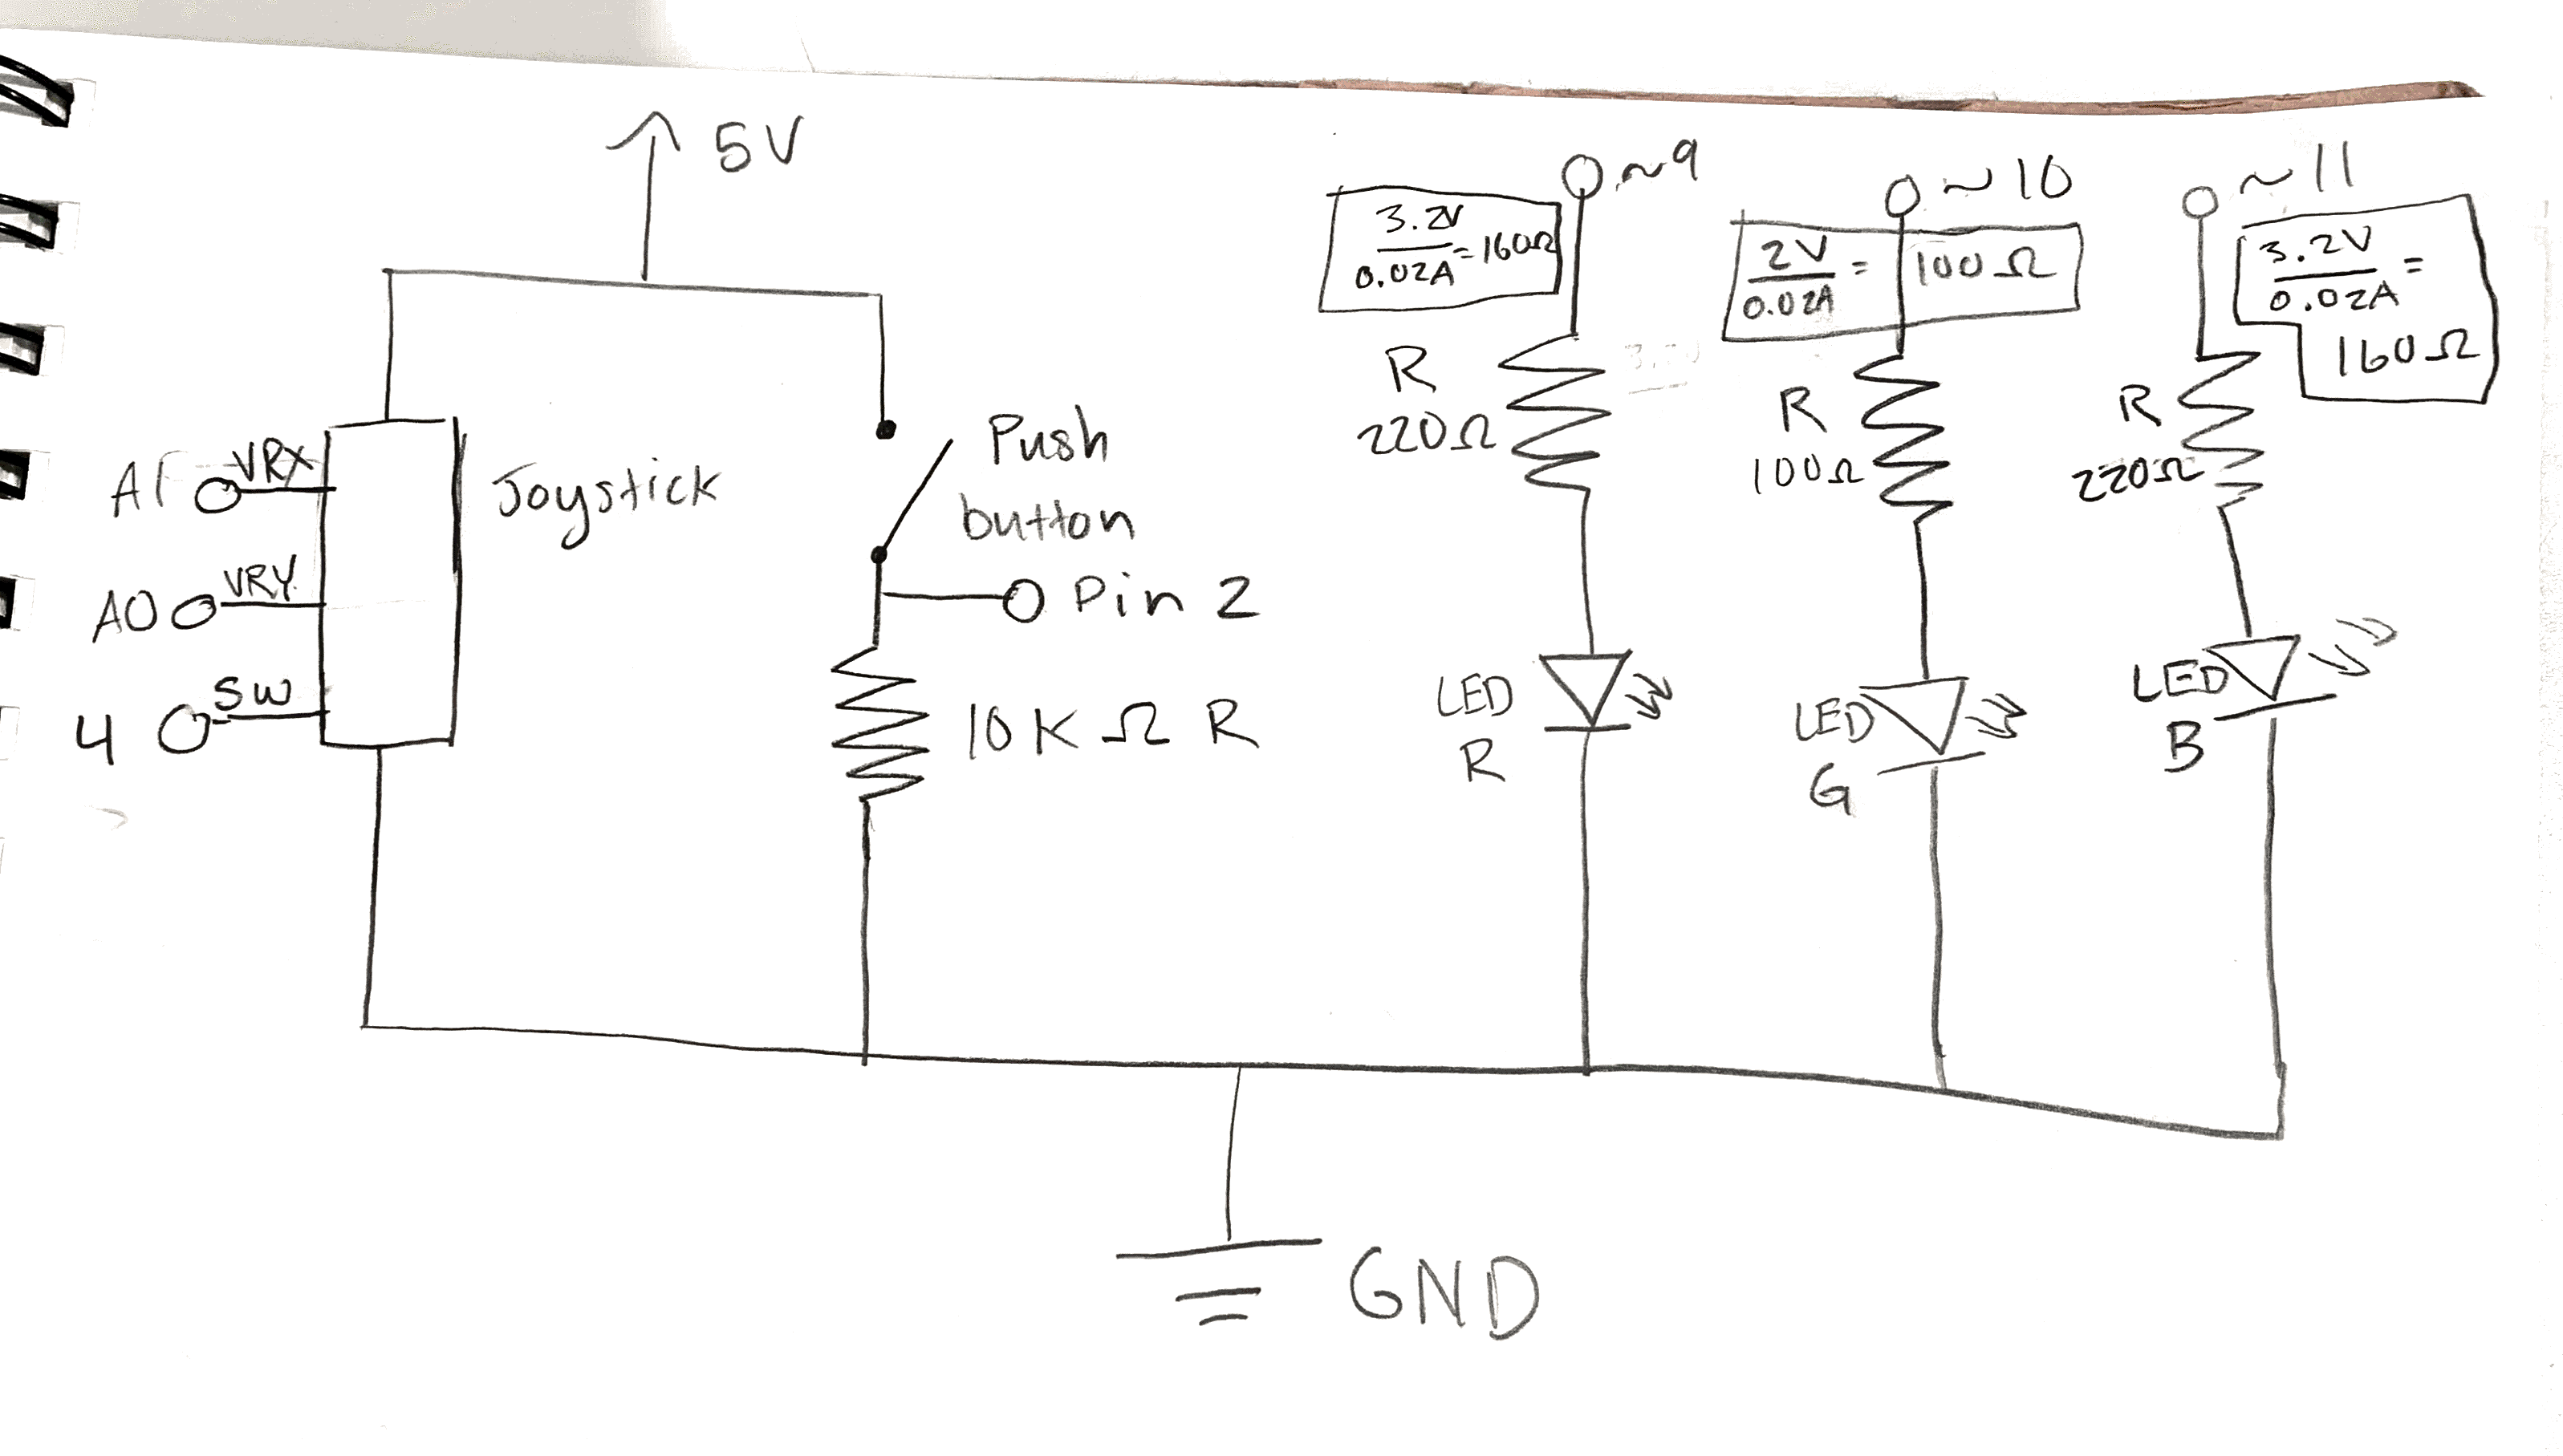 5V
A1
VRX
Joystick
A0
VRY
4
SW
Push
button
Pin 2
10K Ω R
~9
3.2V
0.02A
=160Ω
R
220Ω
LED
R
~10
2V
0.02A
=
100Ω
R
100Ω
LED
G
~11
3.2V
0.02A
=
160Ω
R
220Ω
LED
B
GND